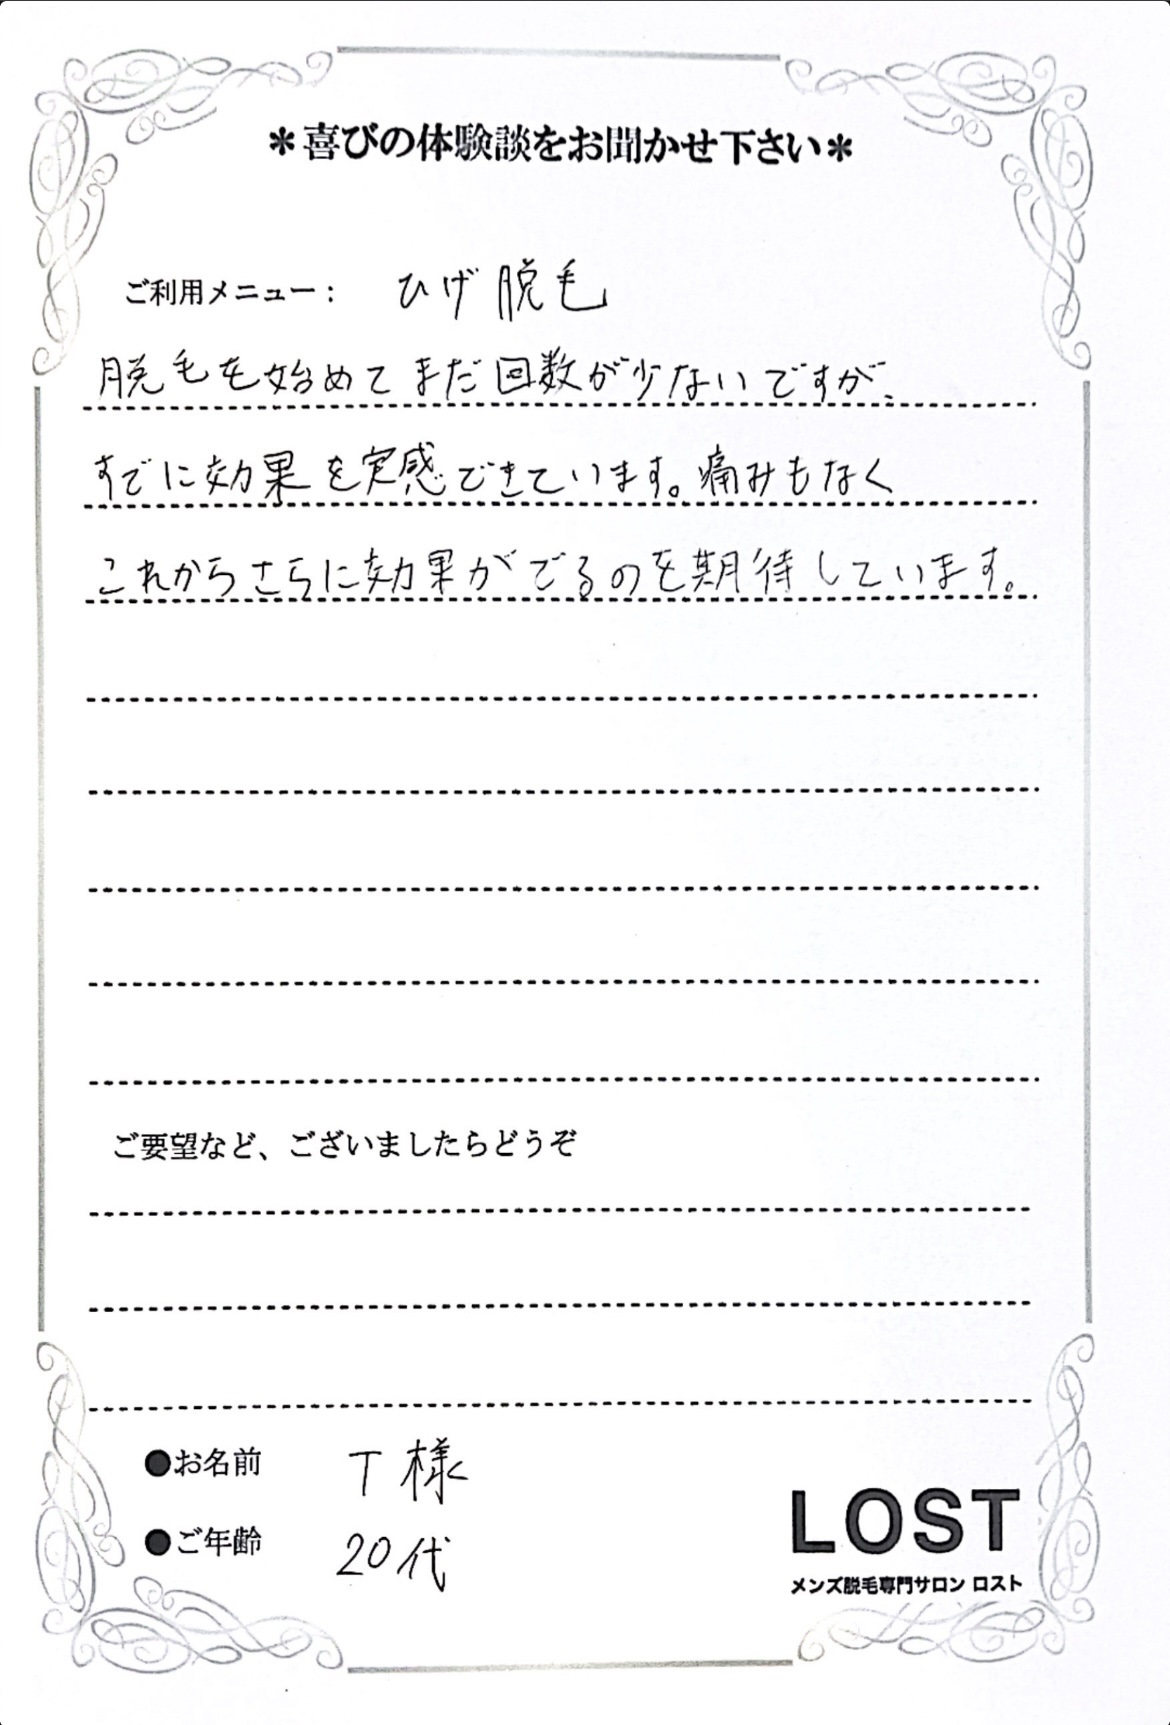 ＊喜びの体験談をお聞かせ下さい＊
ご利用メニュー： ひげ脱毛
脱毛を始めてまだ回数が少ないですが、
すでに効果を実感できています。痛みもなく
これからさらに効果がでるのを期待しています。
ご要望など、ございましたらどうぞ
●お名前 T様
●ご年齢 20代
LOST
メンズ脱毛専門サロン ロスト